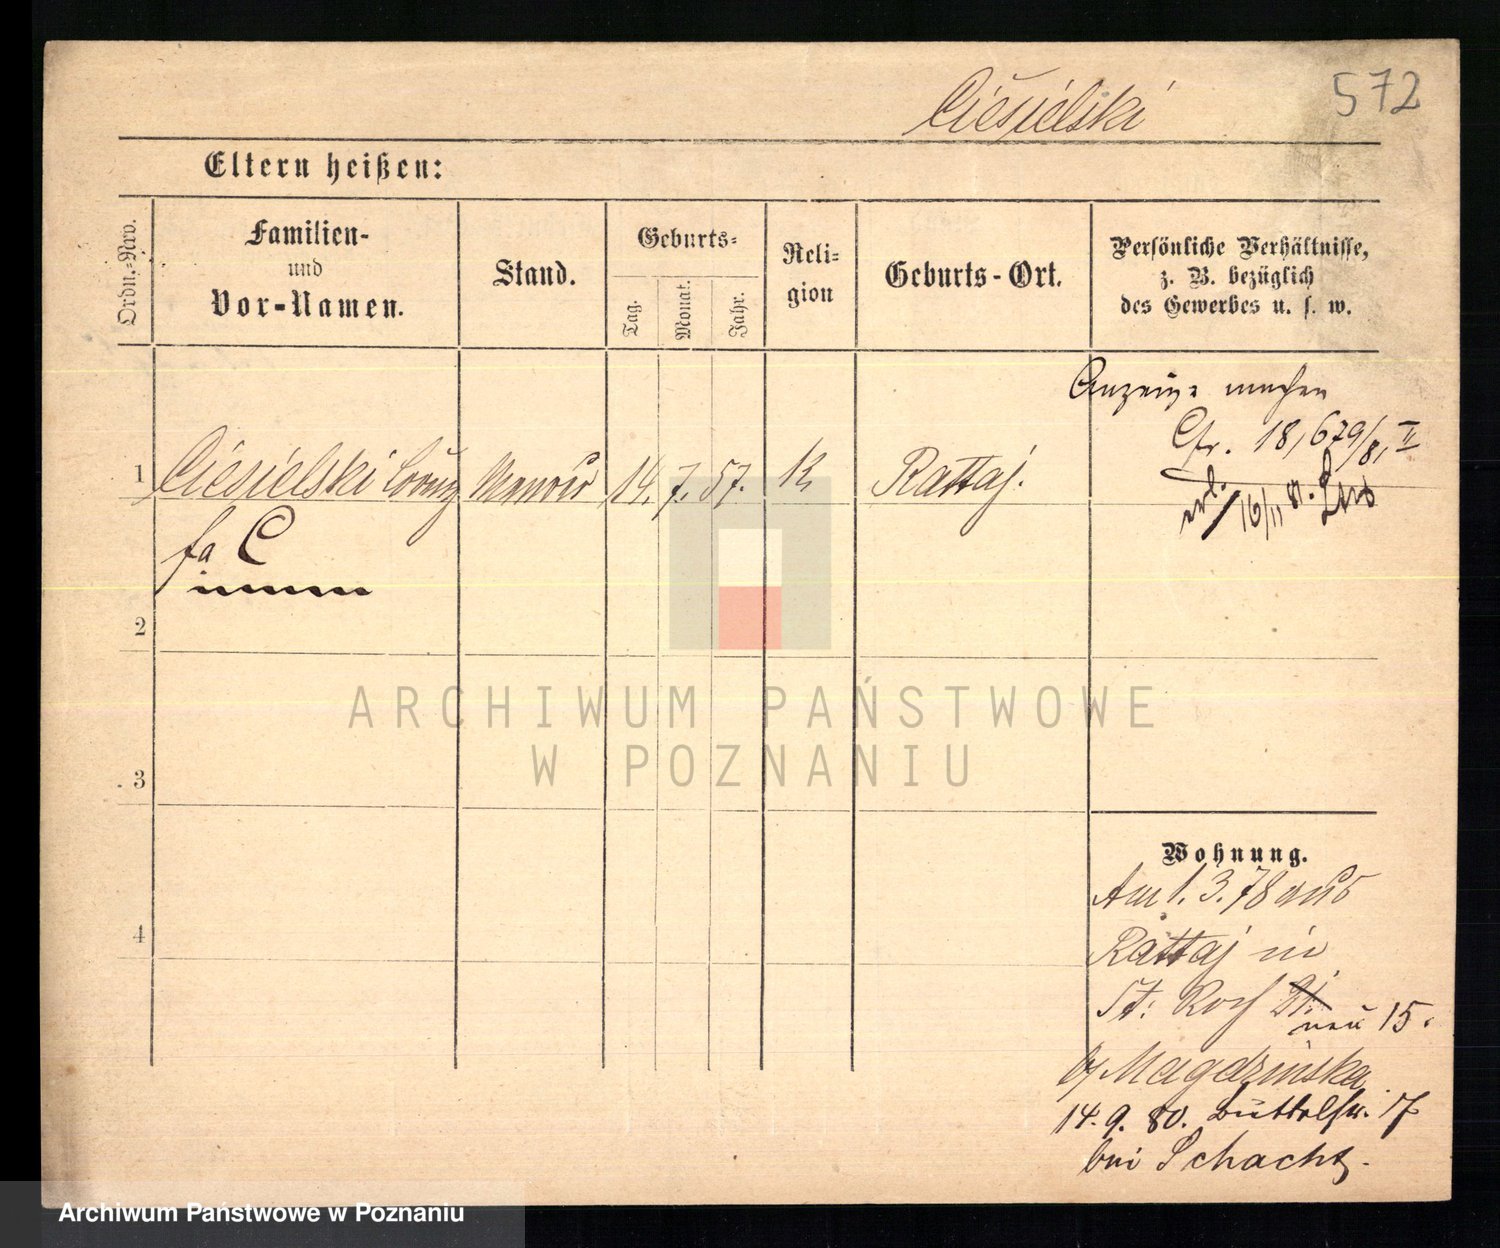 572
Ciesielski
Eltern heißen:
Ordn.-Nro.
Familien-
und
Vor-Namen.
Stand.
Geburts-
Tag.
Monat.
Jahr.
Reli-
gion
Geburts-Ort.
Persönliche Verhältnisse,
z. B. bezüglich
des Gewerbes u. s. w.
Anzeige machen
Cfr. 18,679/81 II
1 Ciesielski Lorenz 14. 7. 57. K Rattaj.
erl. 16/11 81.
fa C
2
3
4
Wohnung.
Am 1. 3. 78 aus
Rattaj in
St: Roch 21.
neu 15.
b/ Magdzinska
14. 9. 80. Büttelstr. 17
bei Schacht.
ARCHIWUM PAŃSTWOWE
W POZNANIU
Archiwum Państwowe w Poznaniu